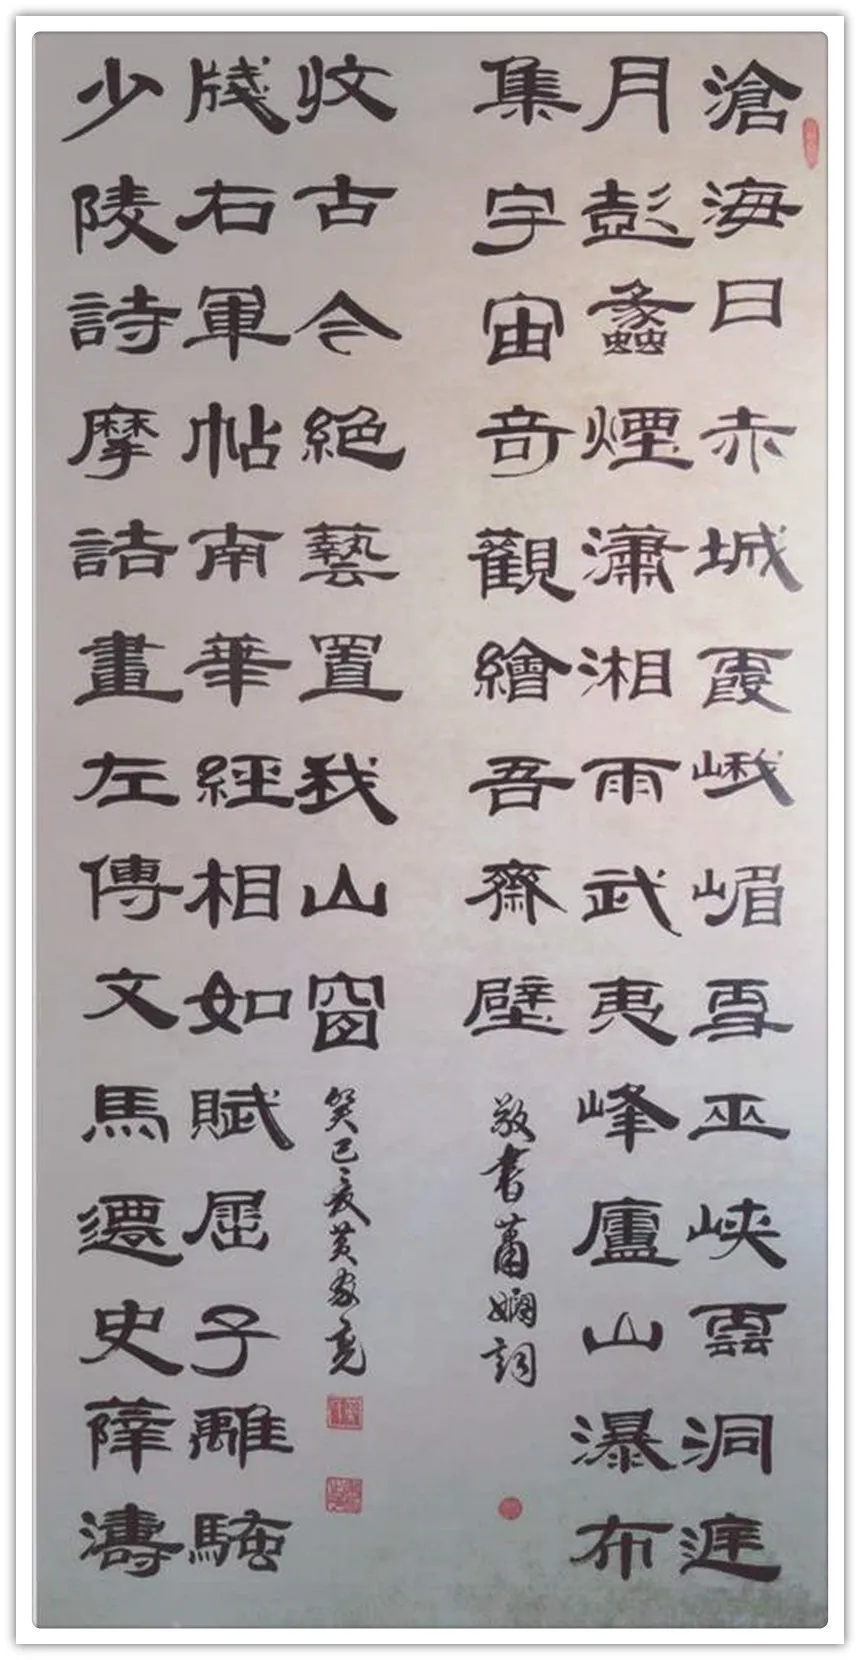 滄海日赤城霞峨嵋雪巫峽雲洞庭
月彭蠡煙瀟湘雨武夷峰廬山瀑布
集宇宙奇觀繪吾齋壁
敬書蕭嫻詞
少陵詩摩詰畫左傳文馬遷史薛濤
牋右軍帖南華經相如賦屈子離騷
收古今絕藝置我山窗
癸巳夏黃家亮